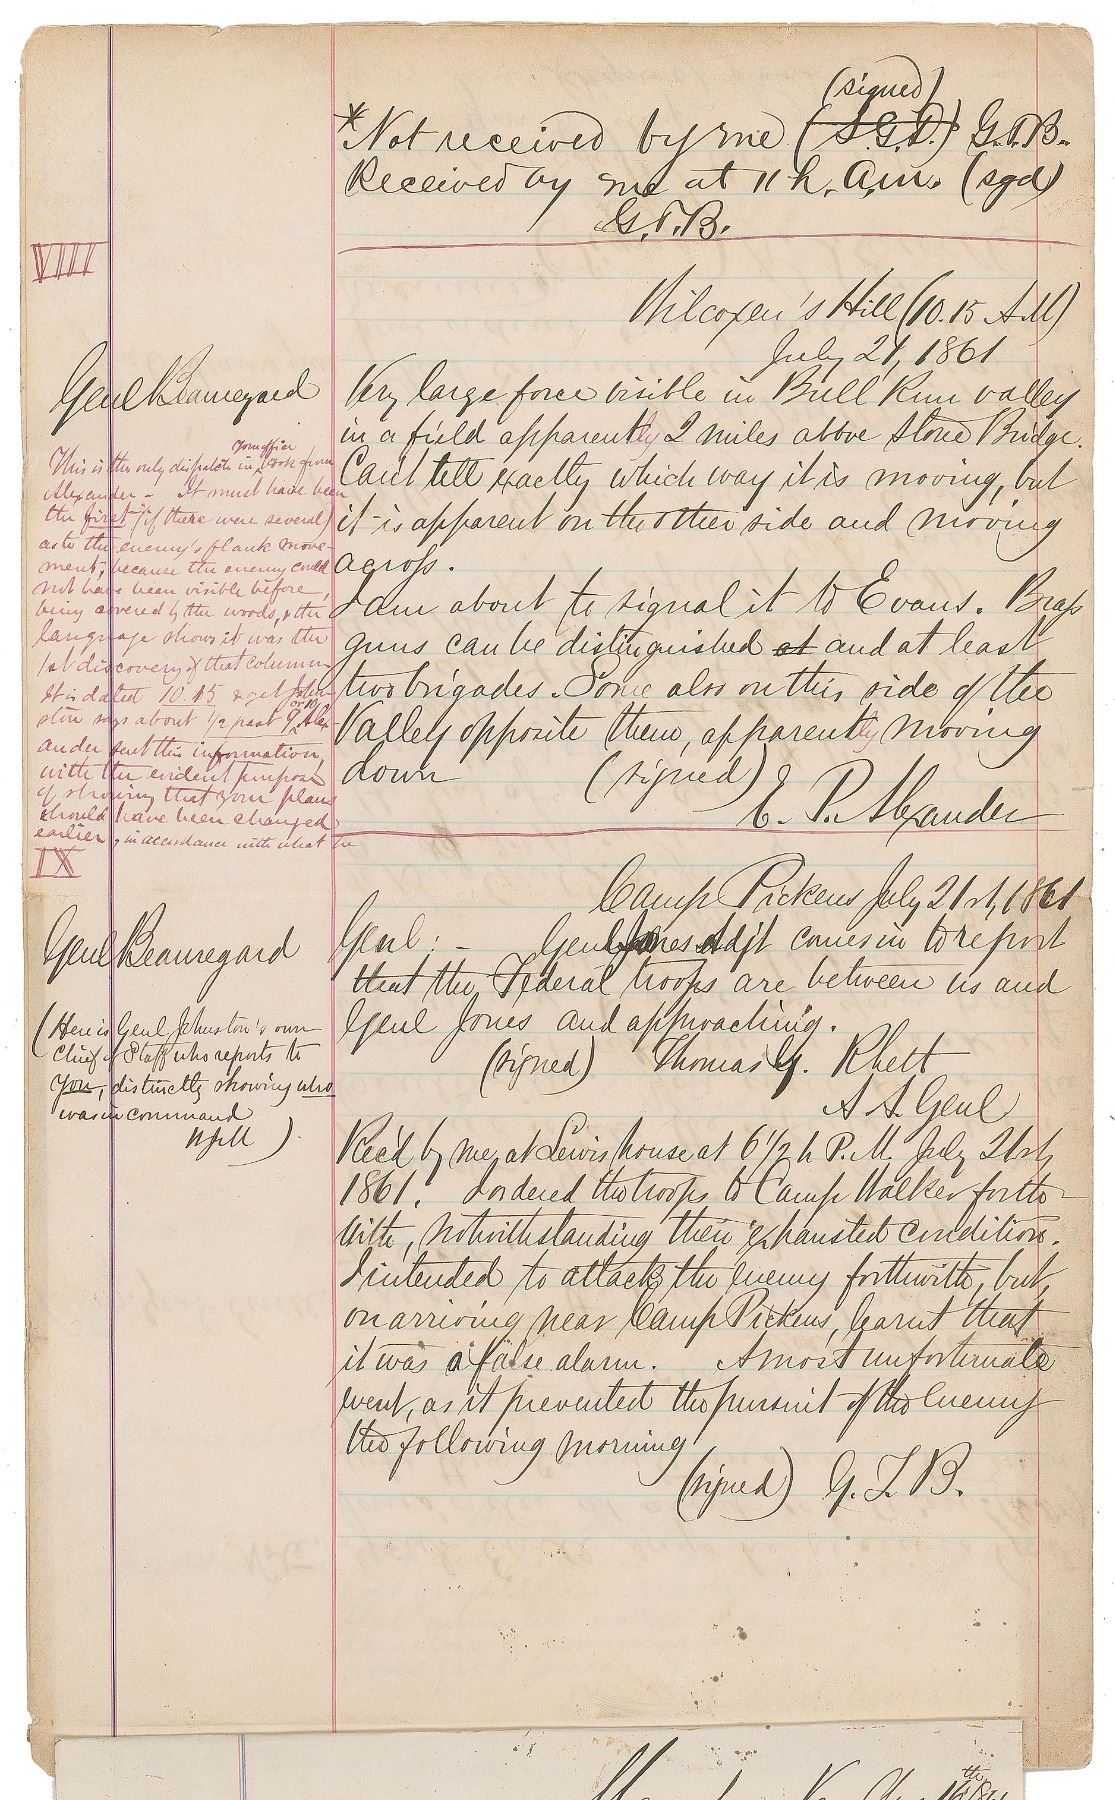 (signed)
*Not received by me (S.G.D.) G.T.B.
Received by me at 11 h. a.m. (sgd)
G.T.B.
VIII
Wilcoxen's Hill (10.15 A.M)
July 21, 1861
Genl Beauregard
Very large force visible in Bull Run valley
in a field apparently 2 miles above Stone Bridge.
Can't tell exactly which way it is moving, but
it is apparent on the other side and moving
across.
I am about to signal it to Evans. Brass
guns can be distinguished at and at least
two brigades. Some also on this side of the
Valley opposite them, apparently moving
down (signed)
E. P. Alexander
your offici
This is the only dispatch in book from
Alexander - It must have been
the first (if there were several)
as to the enemy's flank move-
ment, because the enemy could
not have been visible before,
being covered by the woods, & the
language shows it was the
1st discovery of that column.
It is dated 10.15 & yet John-
ston says about 1/2 past 9, Alex-
or 10
ander sent this information,
with the evident purpose
of showing that your plans
should have been changed
earlier, in accordance with what he
IX
Camp Pickens July 21st, 1861
Genl Beauregard
Genl: - Genl Jones Adjt comes in to report
that the Federal troops are between us and
Genl Jones and approaching.
(signed) Thomas G. Rhett
A A. Genl
(Here is Genl Johnston's own
Chief of Staff who reports to
you, distinctly showing who
was in command
)
Rec'd by me, at Lewis house at 6 1/2 h P.M. July 21st,
1861. I ordered the troops to Camp Walker forth-
with, notwithstanding their exhausted condition.
I intended to attack the enemy forthwith, but,
on arriving near Camp Pickens, learnt that
it was a false alarm. A most unfortunate
event, as it prevented the pursuit of the Enemy
the following morning
(signed) G. T. B.